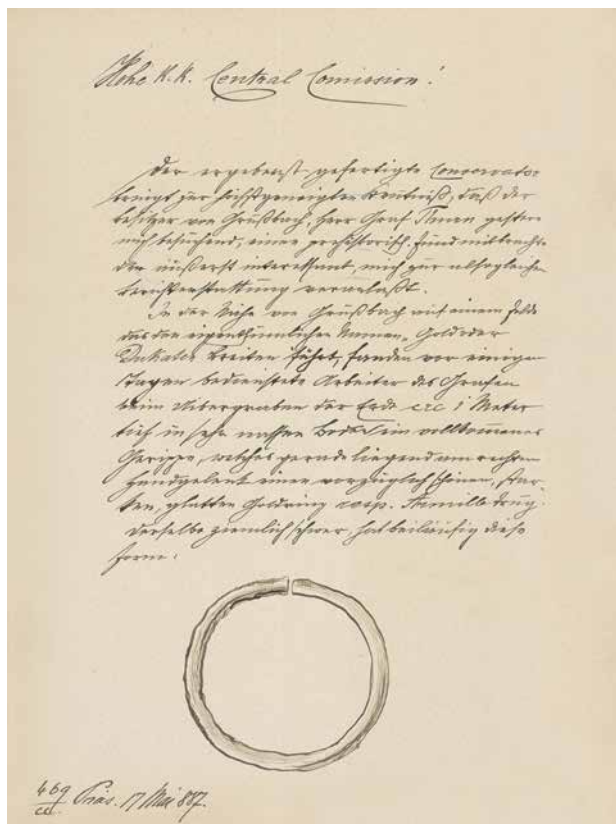 Hohe K. K. Central Comission!
Der ergebenst gefertigte Conservator
bringt zur hochgeneigten Kentniß, daß der
Besitzer von Grußbach, Herr Graf gestern
mich besuchend, einen prähistorisch. Fund mitbrachte
der äußerst interessant, mich zur alsogleichen
Berichterstattung veranlaßt.
In der Nähe von Grußbach auf einem Felde
das den eigenthümlichen Namen „Gold oder
Dukaten Breiten führt, fanden vor einigen
Tagen bedienstete Arbeiter des Grafen
beim Uibergraben der Erde circ 1 Meter
tief in sehr nassen Boden ein vollkommenes
Gerippe, welches gerade liegend am rechten
Handgelenk einen vorzüglich schönen, star-
ken, glatten Goldring resp. Armille trug.
Derselbe ziemlich schwer, hat beiläufig diese
Form:
469
cc. Präs. 17 Mai 887.